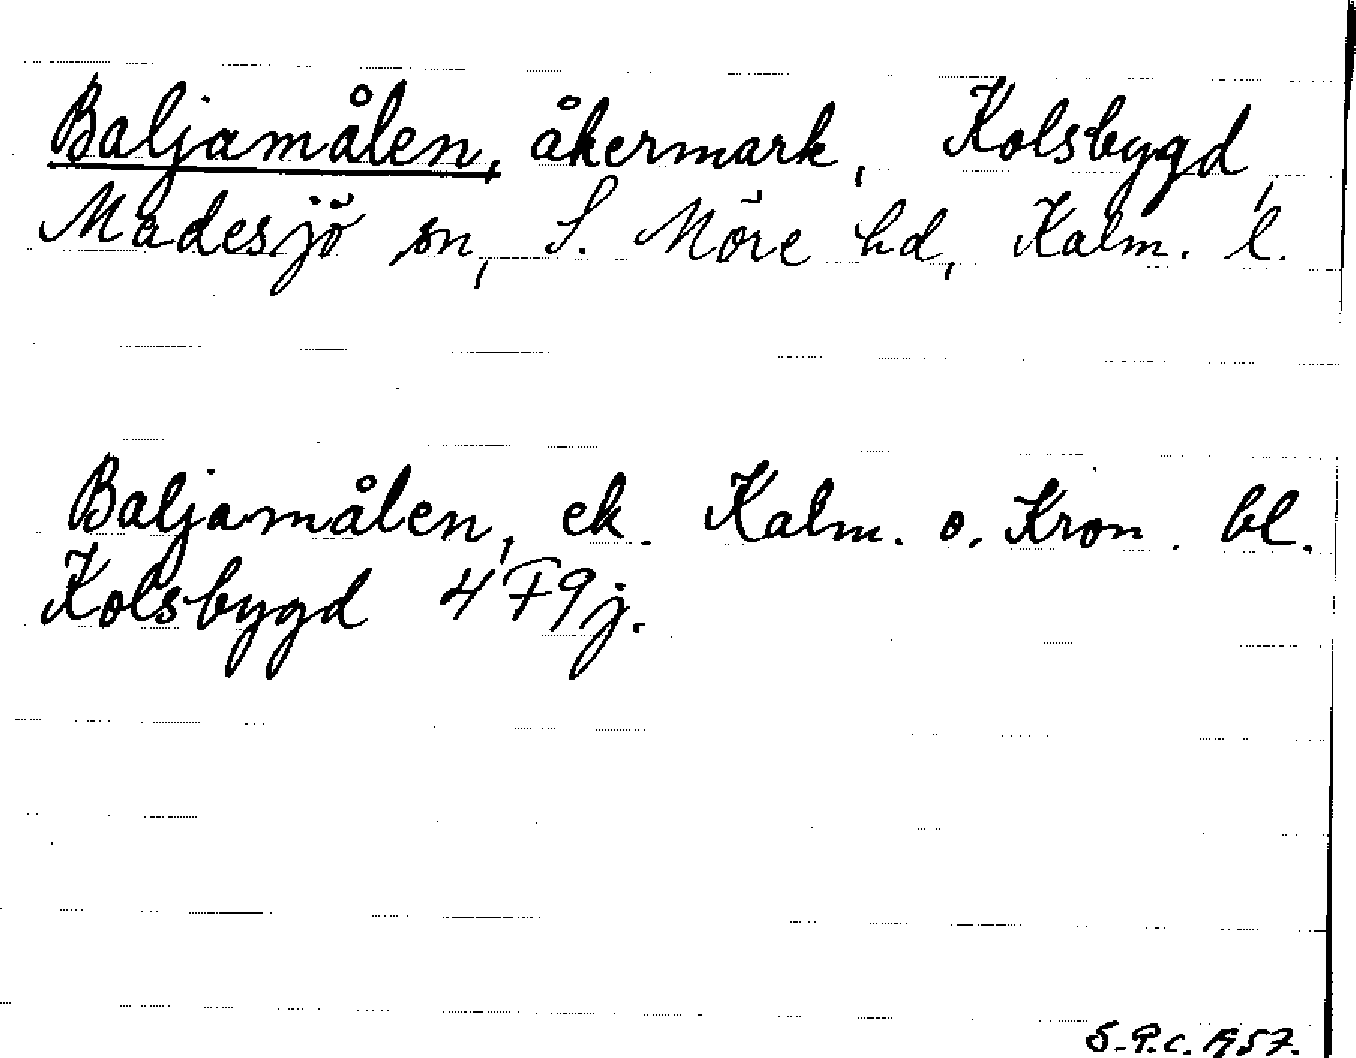 Baljamålen, åkermark, Kolsbygd,
Madesjö sn, S. Möre hd, Kalm. l.
Baljamålen, ek. Kalm. o. Kron. bl.
Kolsbygd 4F9j.
S.P.C. 1957.